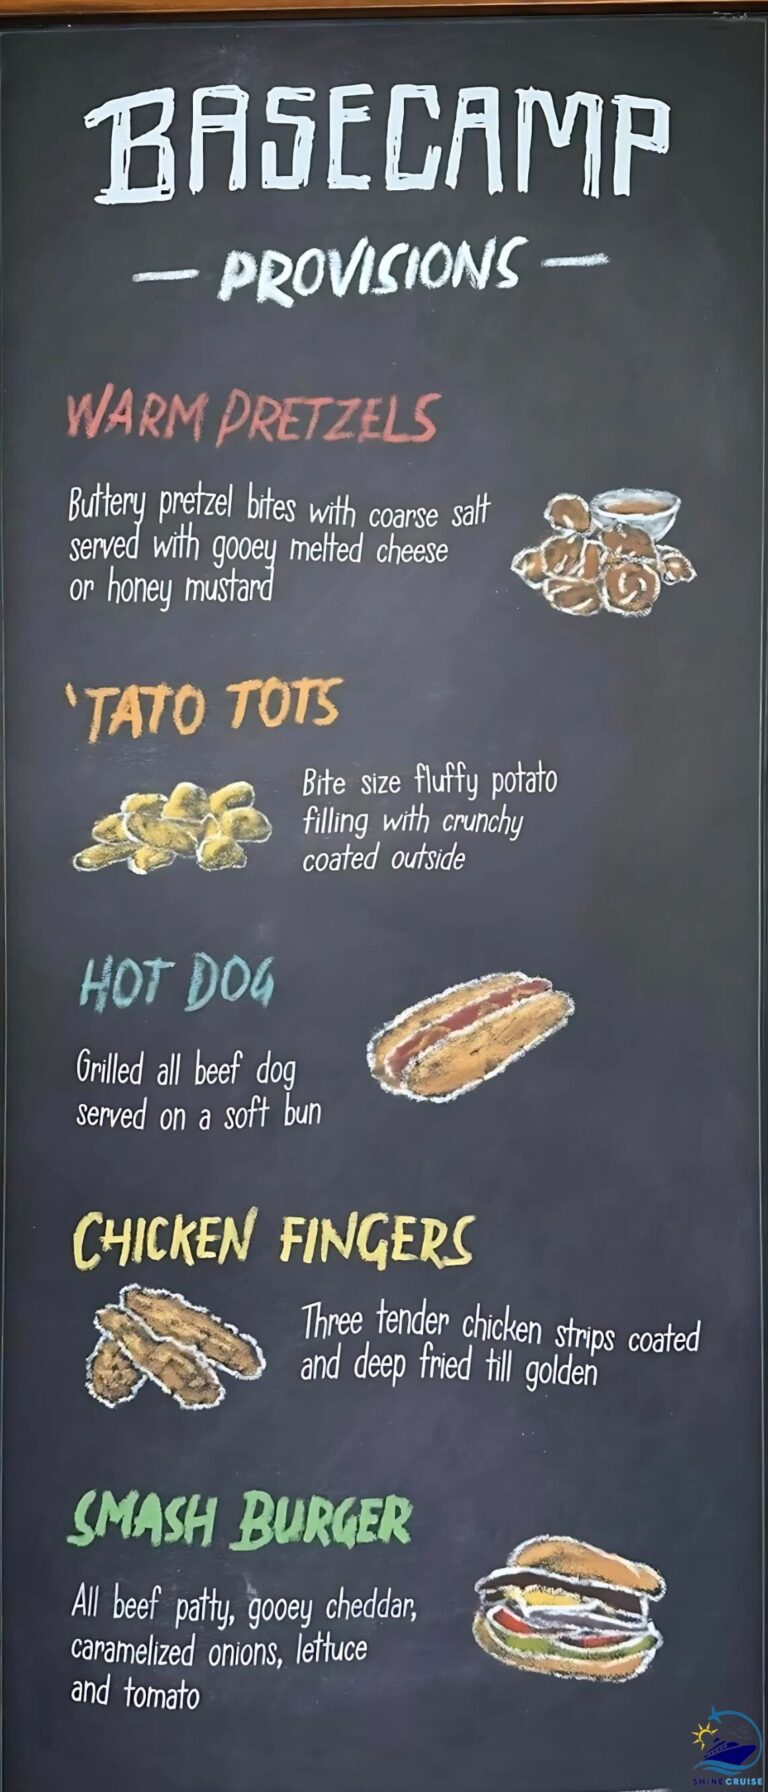 BASECAMP
— PROVISIONS —
WARM PRETZELS
Buttery pretzel bites with coarse salt
served with gooey melted cheese
or honey mustard
'TATO TOTS
Bite size fluffy potato
filling with crunchy
coated outside
HOT DOG
Grilled all beef dog
served on a soft bun
CHICKEN FINGERS
Three tender chicken strips coated
and deep fried till golden
SMASH BURGER
All beef patty, gooey cheddar,
caramelized onions, lettuce
and tomato
SHINE CRUISE